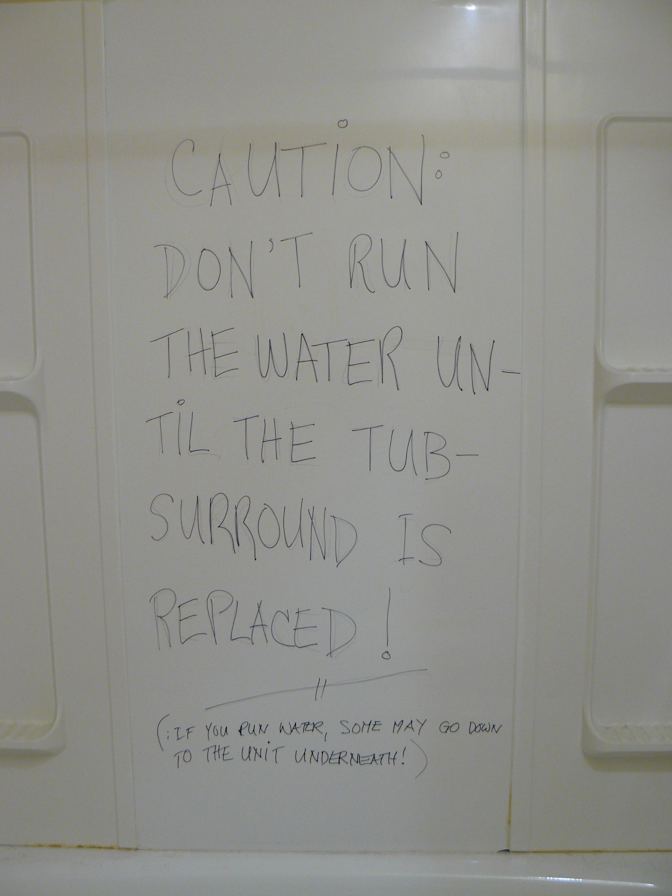 CAUTION:
DON'T RUN
THE WATER UN-
TIL THE TUB-
SURROUND IS
REPLACED!
(:IF YOU RUN WATER, SOME MAY GO DOWN
TO THE UNIT UNDERNEATH!)